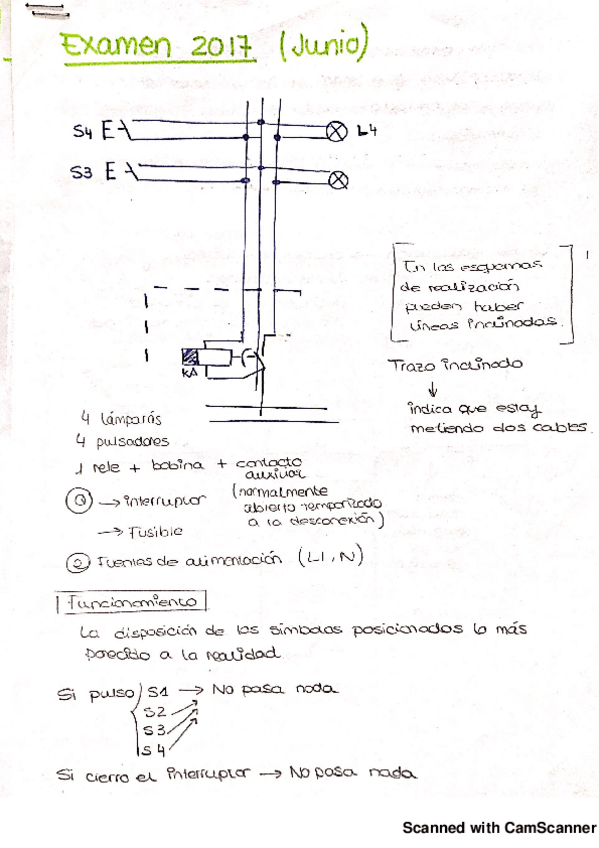 Examen 2017 (Junio)
S4
L4
S3
KA
En los esquemas
de realización
pueden haber
líneas inclinadas.
Trazo inclinado
↓
indica que estoy
metiendo dos cables.
4 lámparas
4 pulsadores
1 rele + bobina + contacto
auxiliar
(normalmente
abierto temporizado
a la desconexión)
Q → interruptor
→ Fusible
2 Fuentes de alimentación (L1, N)
Funcionamiento
La disposición de los símbolos posicionados lo más
parecido a la realidad.
Si pulso S1 → No pasa nada
S2
S3
S4
Si cierro el interruptor → No pasa nada
Scanned with CamScanner